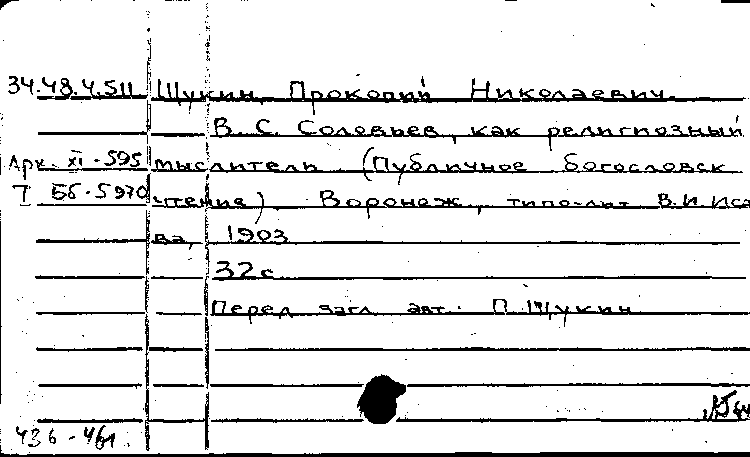 34.48.4.511 Щукин, Прокопий Николаевич.
В. С. Соловьев, как религиозный
Арх. XI-595 мыслитель (Публичное богословск
I Бб-5970 чтение). Воронеж, типо-лит. В.И. Иса
ва, 1903
32 с.
Перед загл. авт.: П. Щукин
436-461.